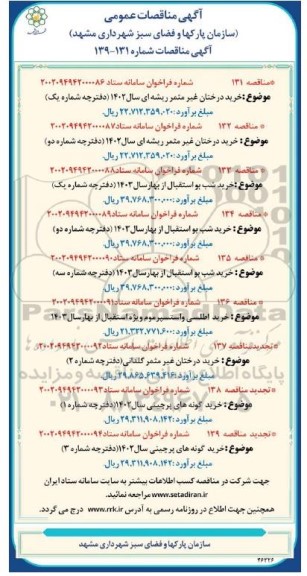 آگهی مناقصات عمومی
(سازمان پارکها و فضای سبز شهرداری مشهد)
آگهی مناقصات شماره ۱۳۱-۱۳۹
*مناقصه ۱۳۱ شماره فراخوان سامانه ستاد ۲۰۰۲۰۹۴۹۴۲۰۰۰۰۸۶
موضوع: خرید درختان غیر مثمر ریشه ای سال۱۴۰۲ (دفترچه شماره یک)
مبلغ برآورد: ۲۲,۷۱۲,۳۵۹,۰۲۰ ریال.
*مناقصه ۱۳۲ شماره فراخوان سامانه ستاد ۲۰۰۲۰۹۴۹۴۲۰۰۰۰۸۷
موضوع: خرید درختان غیر مثمر ریشه ای سال۱۴۰۲ (دفترچه شماره دو)
مبلغ برآورد: ۲۲,۷۱۲,۳۵۹,۰۲۰ ریال.
*مناقصه ۱۳۳ شماره فراخوان سامانه ستاد ۲۰۰۲۰۹۴۹۴۲۰۰۰۰۸۸
موضوع: خرید شب بو استقبال از بهار سال۱۴۰۳ (دفترچه شماره یک)
مبلغ برآورد: ۳۹,۷۶۸,۳۰۰,۰۰۰ ریال.
*مناقصه ۱۳۴ شماره فراخوان سامانه ستاد ۲۰۰۲۰۹۴۹۴۲۰۰۰۰۸۹
موضوع: خرید شب بو استقبال از بهار سال۱۴۰۳ (دفترچه شماره دو)
مبلغ برآورد: ۳۹,۷۶۸,۳۰۰,۰۰۰ ریال.
*مناقصه ۱۳۵ شماره فراخوان سامانه ستاد ۲۰۰۲۰۹۴۹۴۲۰۰۰۰۹۰
موضوع: خرید شب بو استقبال از بهار سال۱۴۰۳ (دفترچه شماره سه)
مبلغ برآورد: ۳۹,۷۶۸,۳۰۰,۰۰۰ ریال.
*مناقصه ۱۳۶ شماره فراخوان سامانه ستاد ۲۰۰۲۰۹۴۹۴۲۰۰۰۰۹۱
موضوع: خرید اطلسی وآلتسیرموم ویژه استقبال از بهار سال۱۴۰۳
مبلغ برآورد: ۲۱,۳۲۲,۷۷۱,۶۰۰ ریال.
*تجدیدمناقصه ۱۳۷ شماره فراخوان سامانه ستاد ۲۰۰۲۰۹۴۹۴۲۰۰۰۰۹۲
موضوع: خرید درختان غیر مثمر گلدانی (دفترچه شماره ۲)
مبلغ برآورد:
*تجدید مناقصه ۱۳۸ شماره فراخوان سامانه ستاد ۲۰۰۲۰۹۴۹۴۲۰۰۰۰۹۳
موضوع: خرید گونه های پرچینی سال۱۴۰۲ (دفترچه شماره ۱)
مبلغ برآورد: ۲۹,۳۱۱,۹۰۸,۱۴۲ ریال.
*تجدید مناقصه ۱۳۹ شماره فراخوان سامانه ستاد ۲۰۰۲۰۹۴۹۴۲۰۰۰۰۹۴
موضوع: خرید گونه های پرچینی سال۱۴۰۲ (دفترچه شماره ۳)
مبلغ برآورد: ۲۹,۳۱۱,۹۰۸,۱۴۲ ریال.
جهت شرکت در مناقصه کسب اطلاعات بیشتر به سایت سامانه ستاد ایران
www.setadiran.ir مراجعه نمایید.
همچنین جهت اطلاع در روزنامه رسمی به آدرس www.rrk.ir درج می گردد.
سازمان پارکها و فضای سبز شهرداری مشهد
۴۶۲۲۶